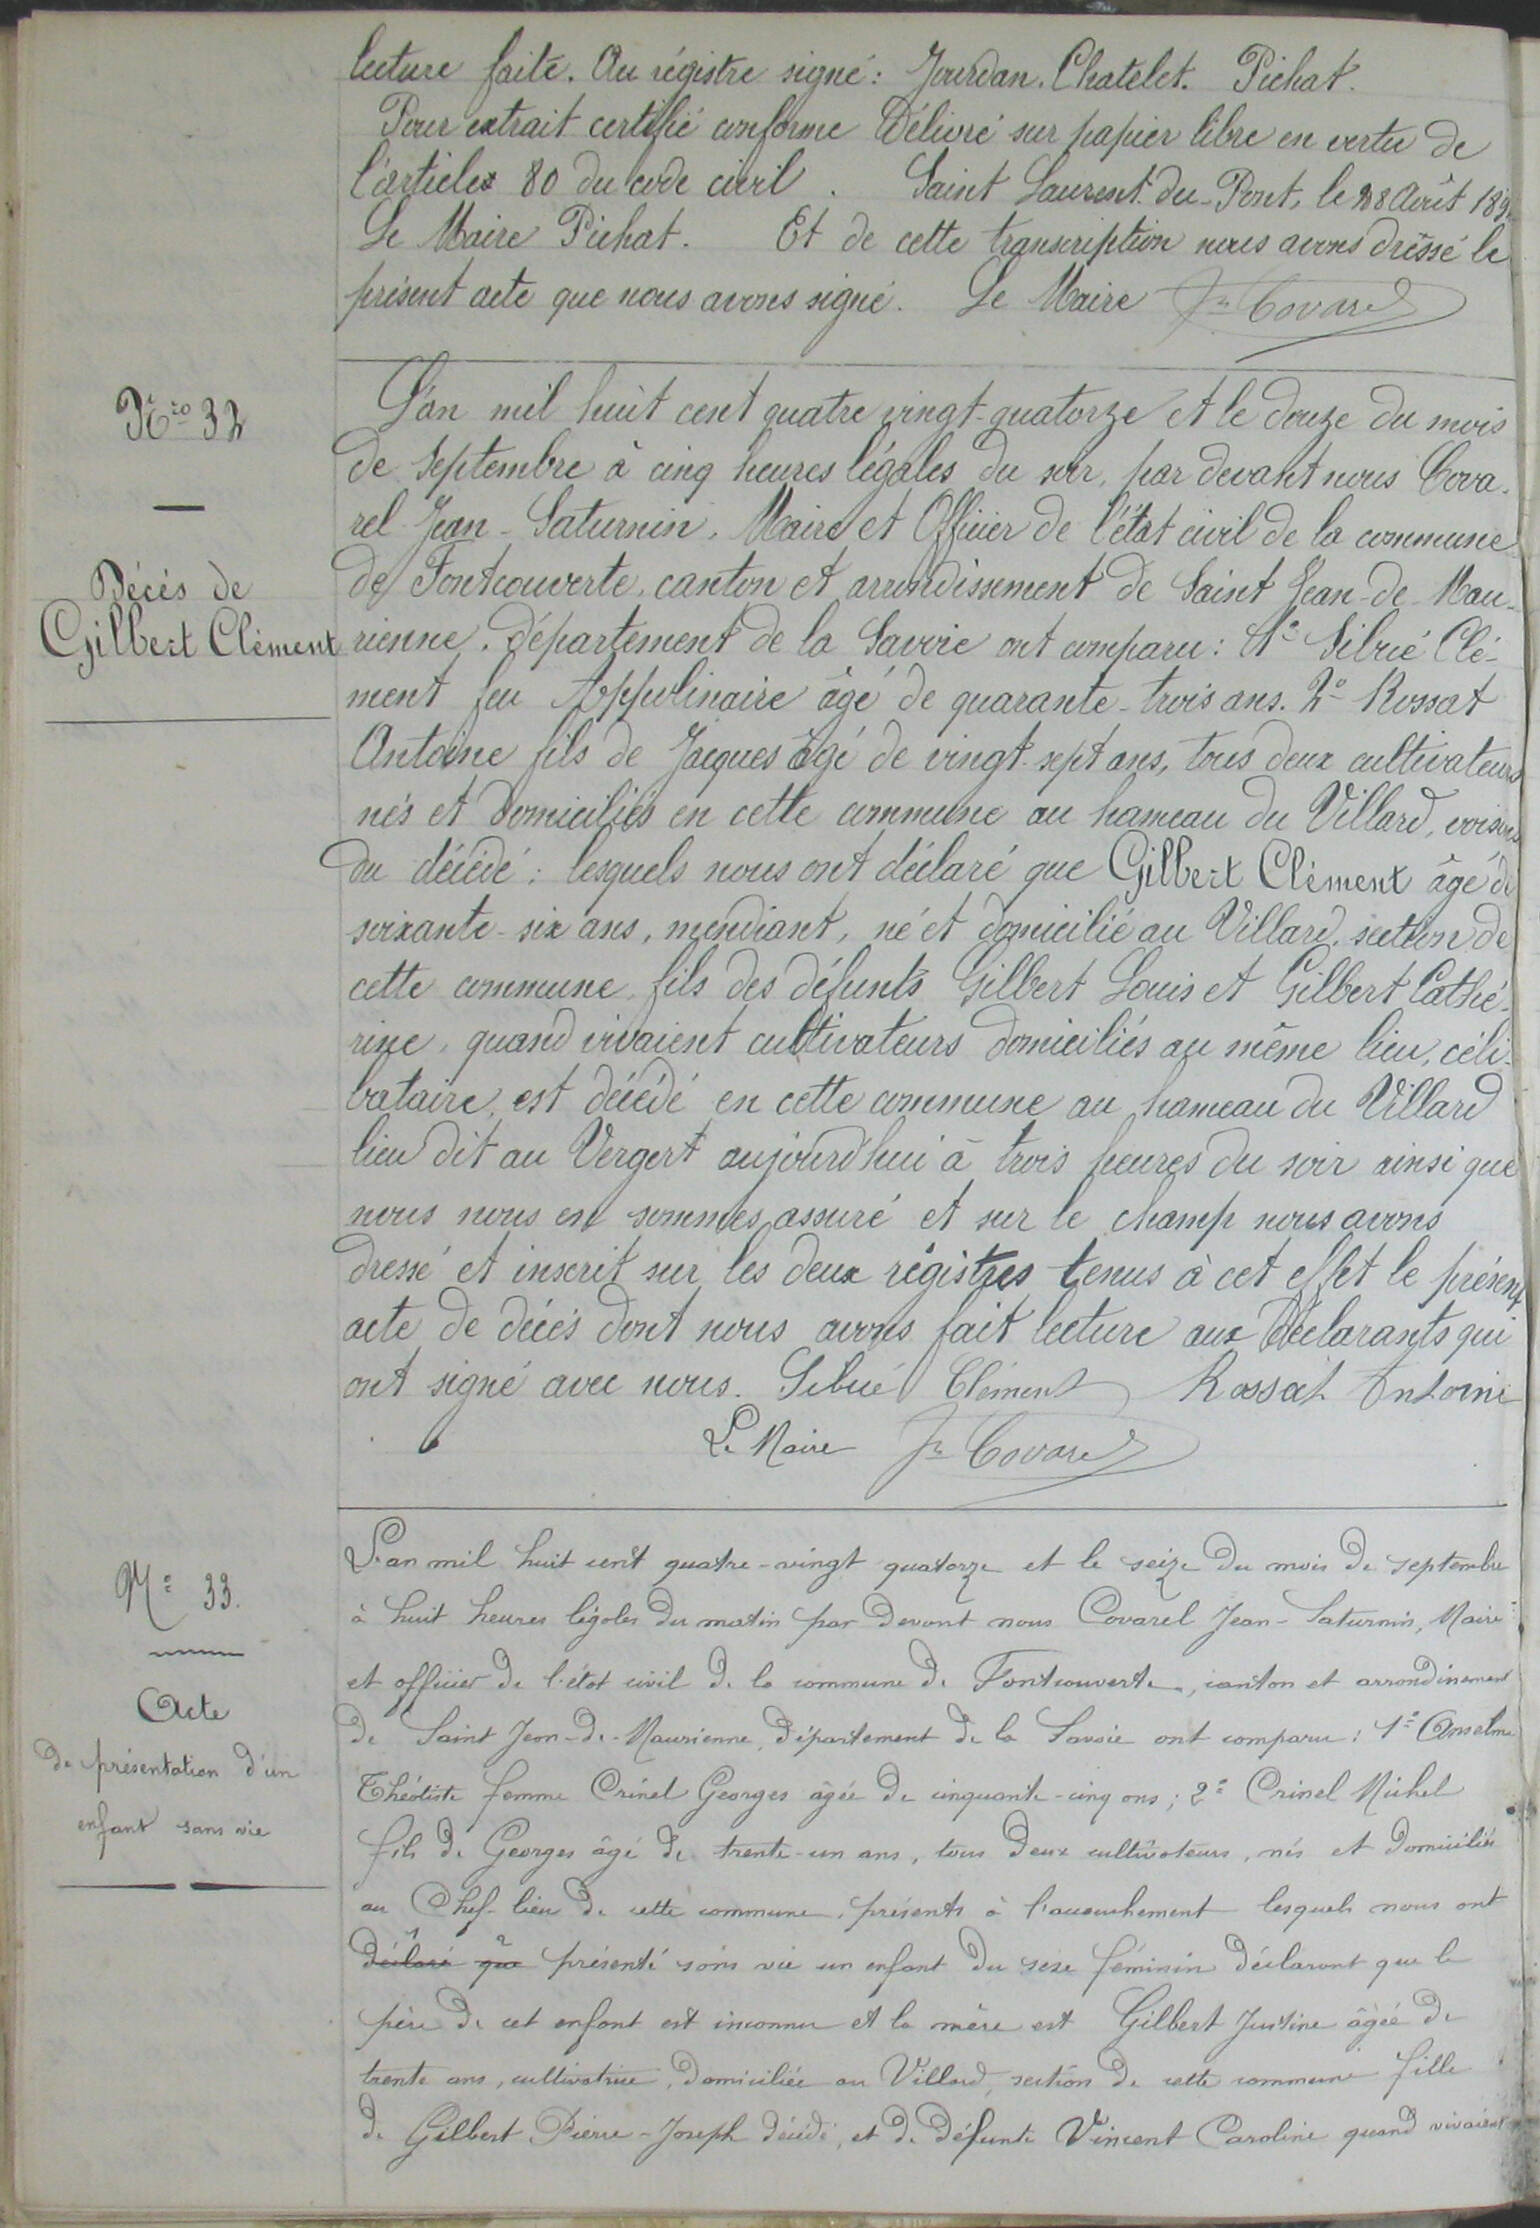 lecture faite. Au régistre signé : Jourdan. Chatelet. Pichat.
Pour extrait certifié conforme Délivré sur papier libre en vertu de
l'article 80 du code civil. Saint Laurent-du-Pont, le 28 Août 189
Le Maire Pichat. Et de cette transcription nous avons dréssé le
présent acte que nous avons signé. Le Maire Jn Covarel
Nro 32
Décés de
Gilbert Clément
L'an mil huit cent quatre vingt-quatorze et le douze du mois
de Septembre à cinq heures légales du soir, par devant nous Cova-
rel Jean-Saturnin, Maire et Officier de l'état civil de la commune
de Fontcouverte, canton et arrondissement de Saint Jean-de-Mau-
rienne, département de la Savoie ont comparu : 1° Sibué Clé-
ment feu Appolinaire âgé de quarante-trois ans. 2° Rossat
Antoine fils de Jacques âgé de vingt-sept ans, tous deux cultivateurs
nés et domiciliés en cette commune au hameau du Villard, voisins
du décédé ; lesquels nous ont déclaré que Gilbert Clément âgé de
soixante-six ans, mendiant, né et domicilié au Villard, section de
cette commune, fils des défunts Gilbert Louis et Gilbert Cathé-
rine, quand vivaient cultivateurs domiciliés au même lieu, céli-
bataire, est décédé en cette commune au hameau du Villard
lieu dit au Vergert aujourd'hui à trois heures du soir ainsi que
nous nous en sommes assuré et sur le champ nous avons
dressé et inscrit sur les deux régistres tenus à cet effet le présent
acte de décés dont nous avons fait lecture aux Déclarants qui
ont signé avec nous. Sibué Clément Rossat Antoine
Le Maire Jn Covarel
N° 33.
Acte
de présentation d'un
enfant sans vie
L'an mil huit cent quatre-vingt quatorze et le seize du mois de septembre
à huit heures légales du matin par devant nous Covarel Jean-Saturnin, Maire
et officier de l'état civil de la commune de Fontcouverte, canton et arrondissement
de Saint Jean-de-Maurienne, département de la Savoie ont comparu : 1° Anselme
Théotiste femme Crinel Georges âgée de cinquante-cinq ans ; 2° Crinel Michel
fils de Georges âgé de trente-un ans, tous deux cultivateurs, nés et domiciliés
au Chef-lieu de cette commune, présents à l'accouchement lesquels nous ont
déclaré que présenté sans vie un enfant du sexe féminin déclarant que le
père de cet enfant est inconnu et la mère est Gilbert Justine âgée de
trente ans, cultivatrice, domiciliée au Villard, section de cette commune fille
de Gilbert Pierre-Joseph décédé, et de défunte Vincent Caroline quand vivaient